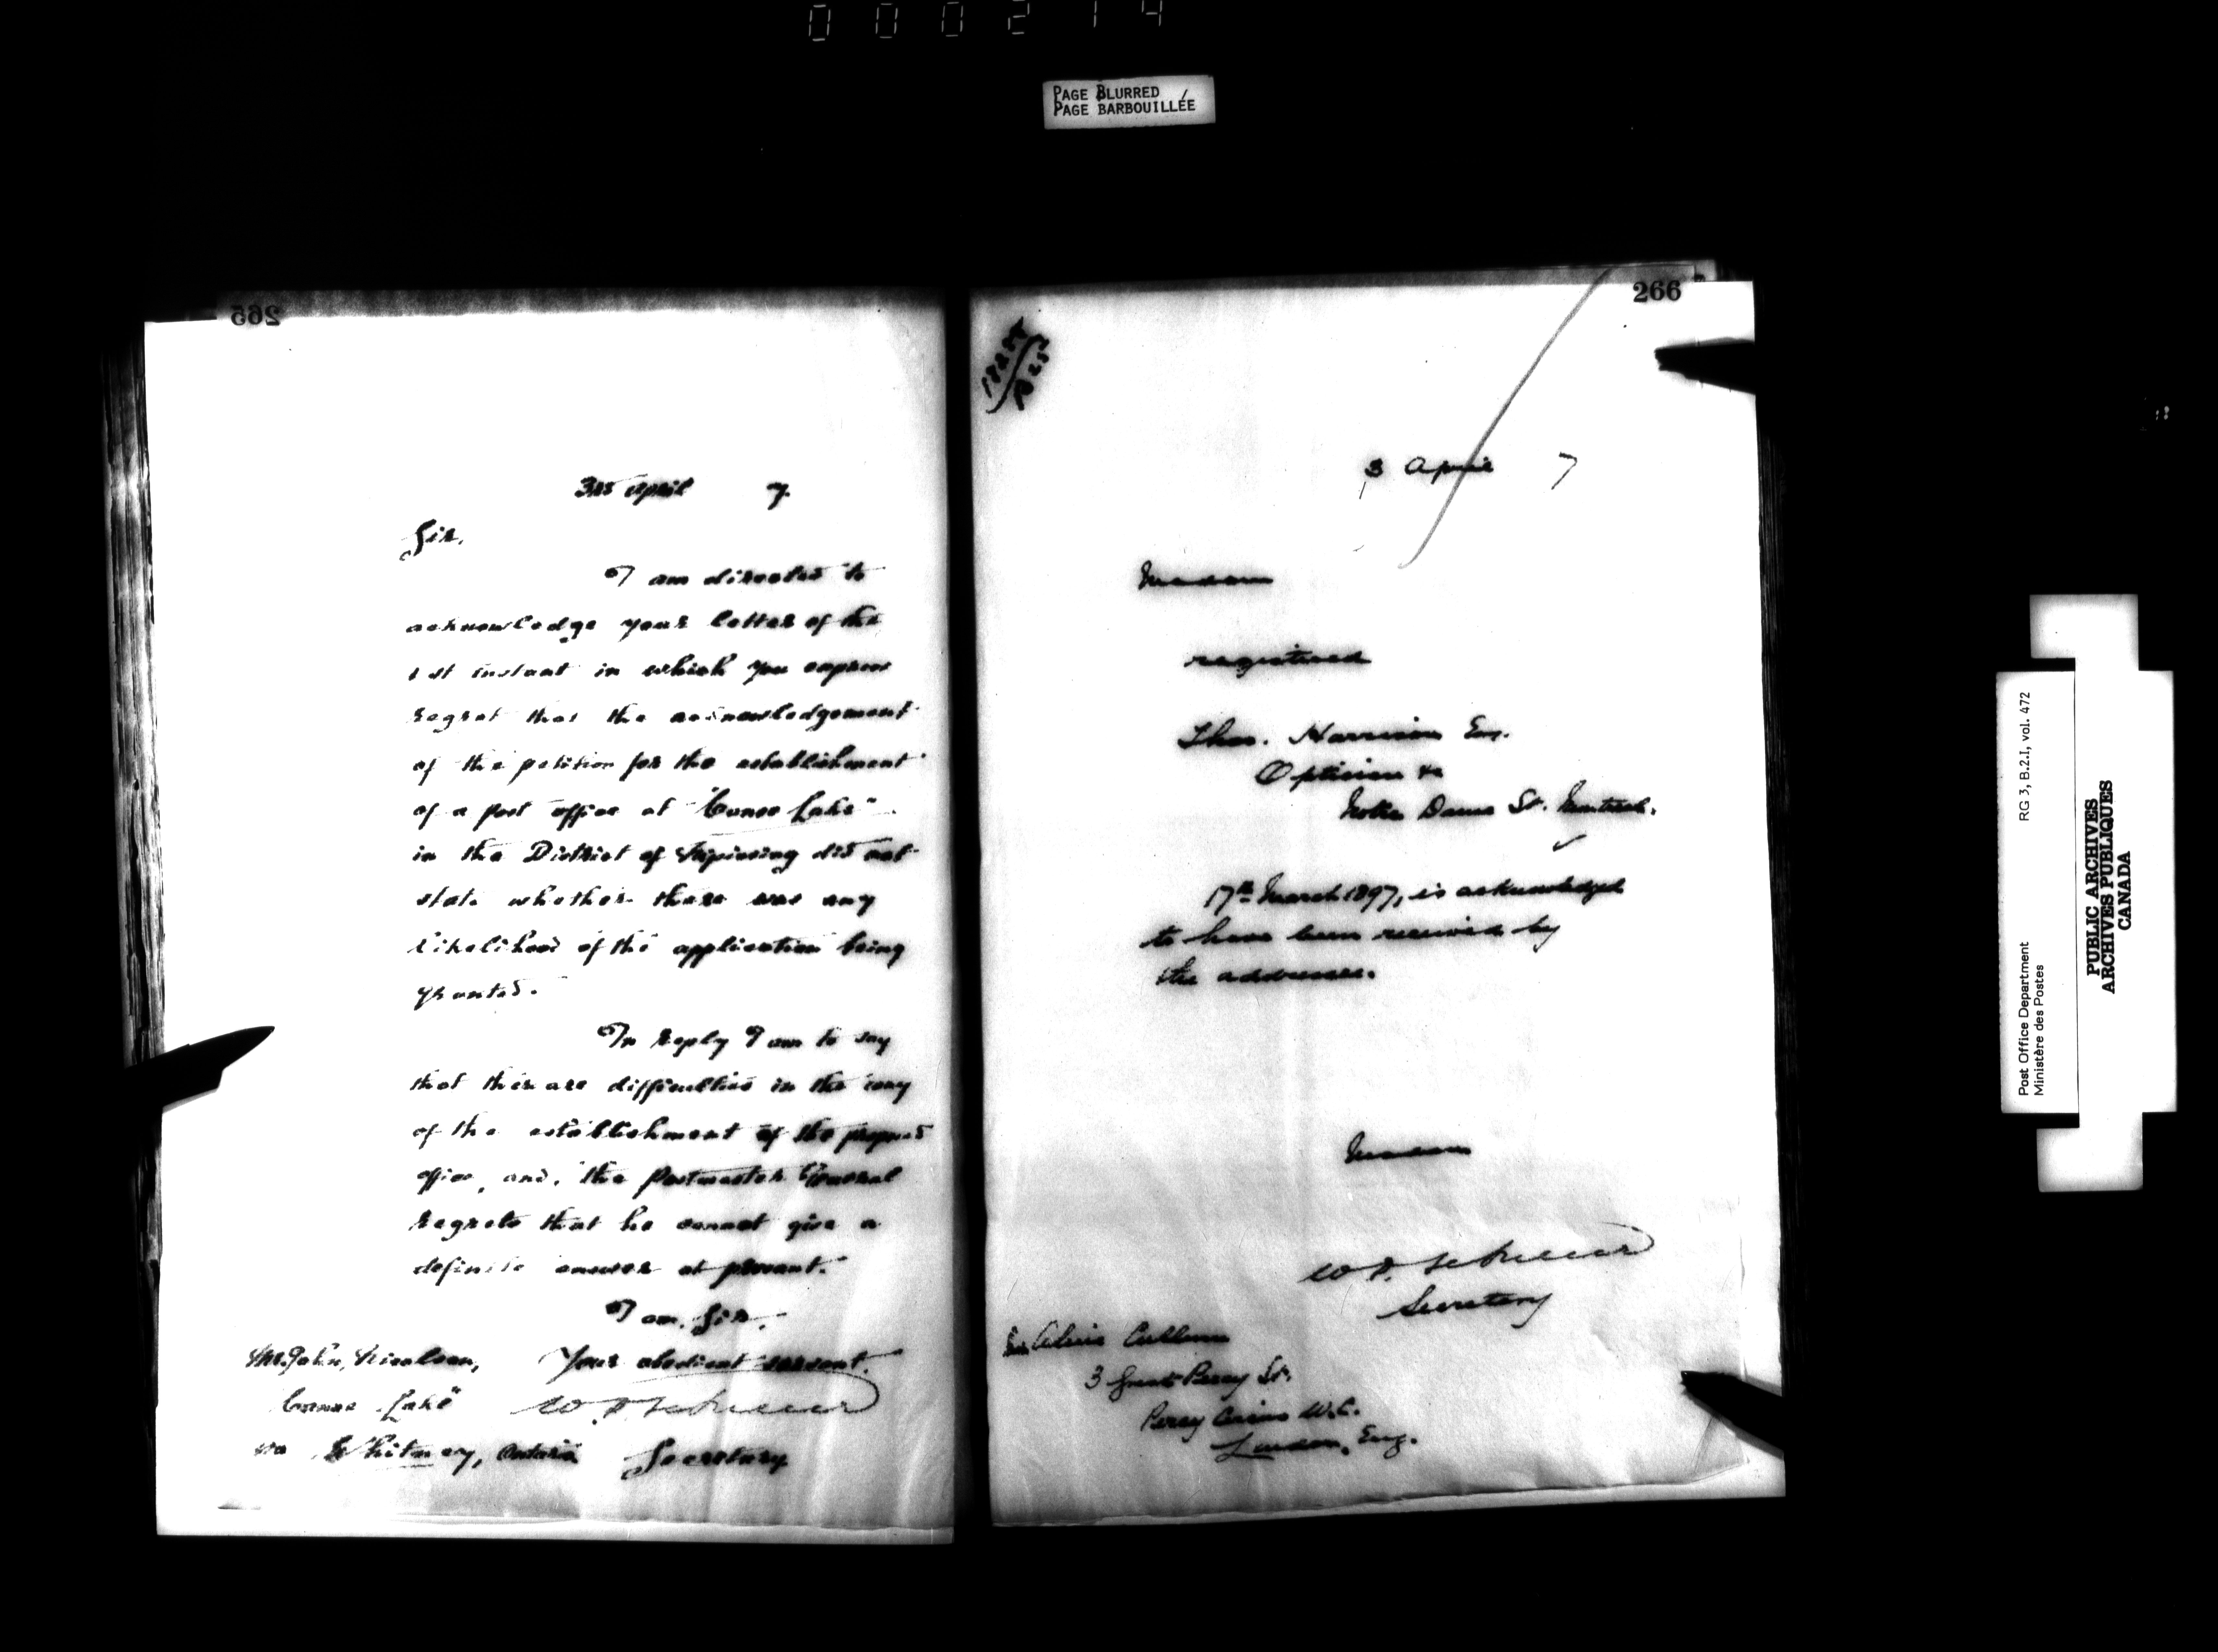 000214
PAGE BLURRED
PAGE BARBOUILLÉE
265
3rd April 7.
Sir,
I am directed to
acknowledge your letter of the
1st instant in which you express
regret that the acknowledgement
of the petition for the establishment
of a post office at "Canoe Lake"
in the District of Nipissing did not
state whether there was any
likelihood of the application being
granted.
In reply I am to say
that there are difficulties in the way
of the establishment of the proposed
office, and, the Postmaster General
regrets that he cannot give a
definite answer at present.
I am, Sir,
Your obedient servant.
Mr. John Nicolson,
"Canoe Lake"
via Whitney, Ontario
Secretary
266
3 April 7
Madam
registered
Thos. Harrison Esq.
Optician &c
Notre Dame St. Montreal.
17th March 1897, is acknowledged
to have been received by
the addressee.
Madam
Secretary
3 Great Percy St.
Percy Circus W.C.
London, Eng.
Post Office Department
Ministère des Postes
RG 3, B.2.I, vol. 472
PUBLIC ARCHIVES
ARCHIVES PUBLIQUES
CANADA